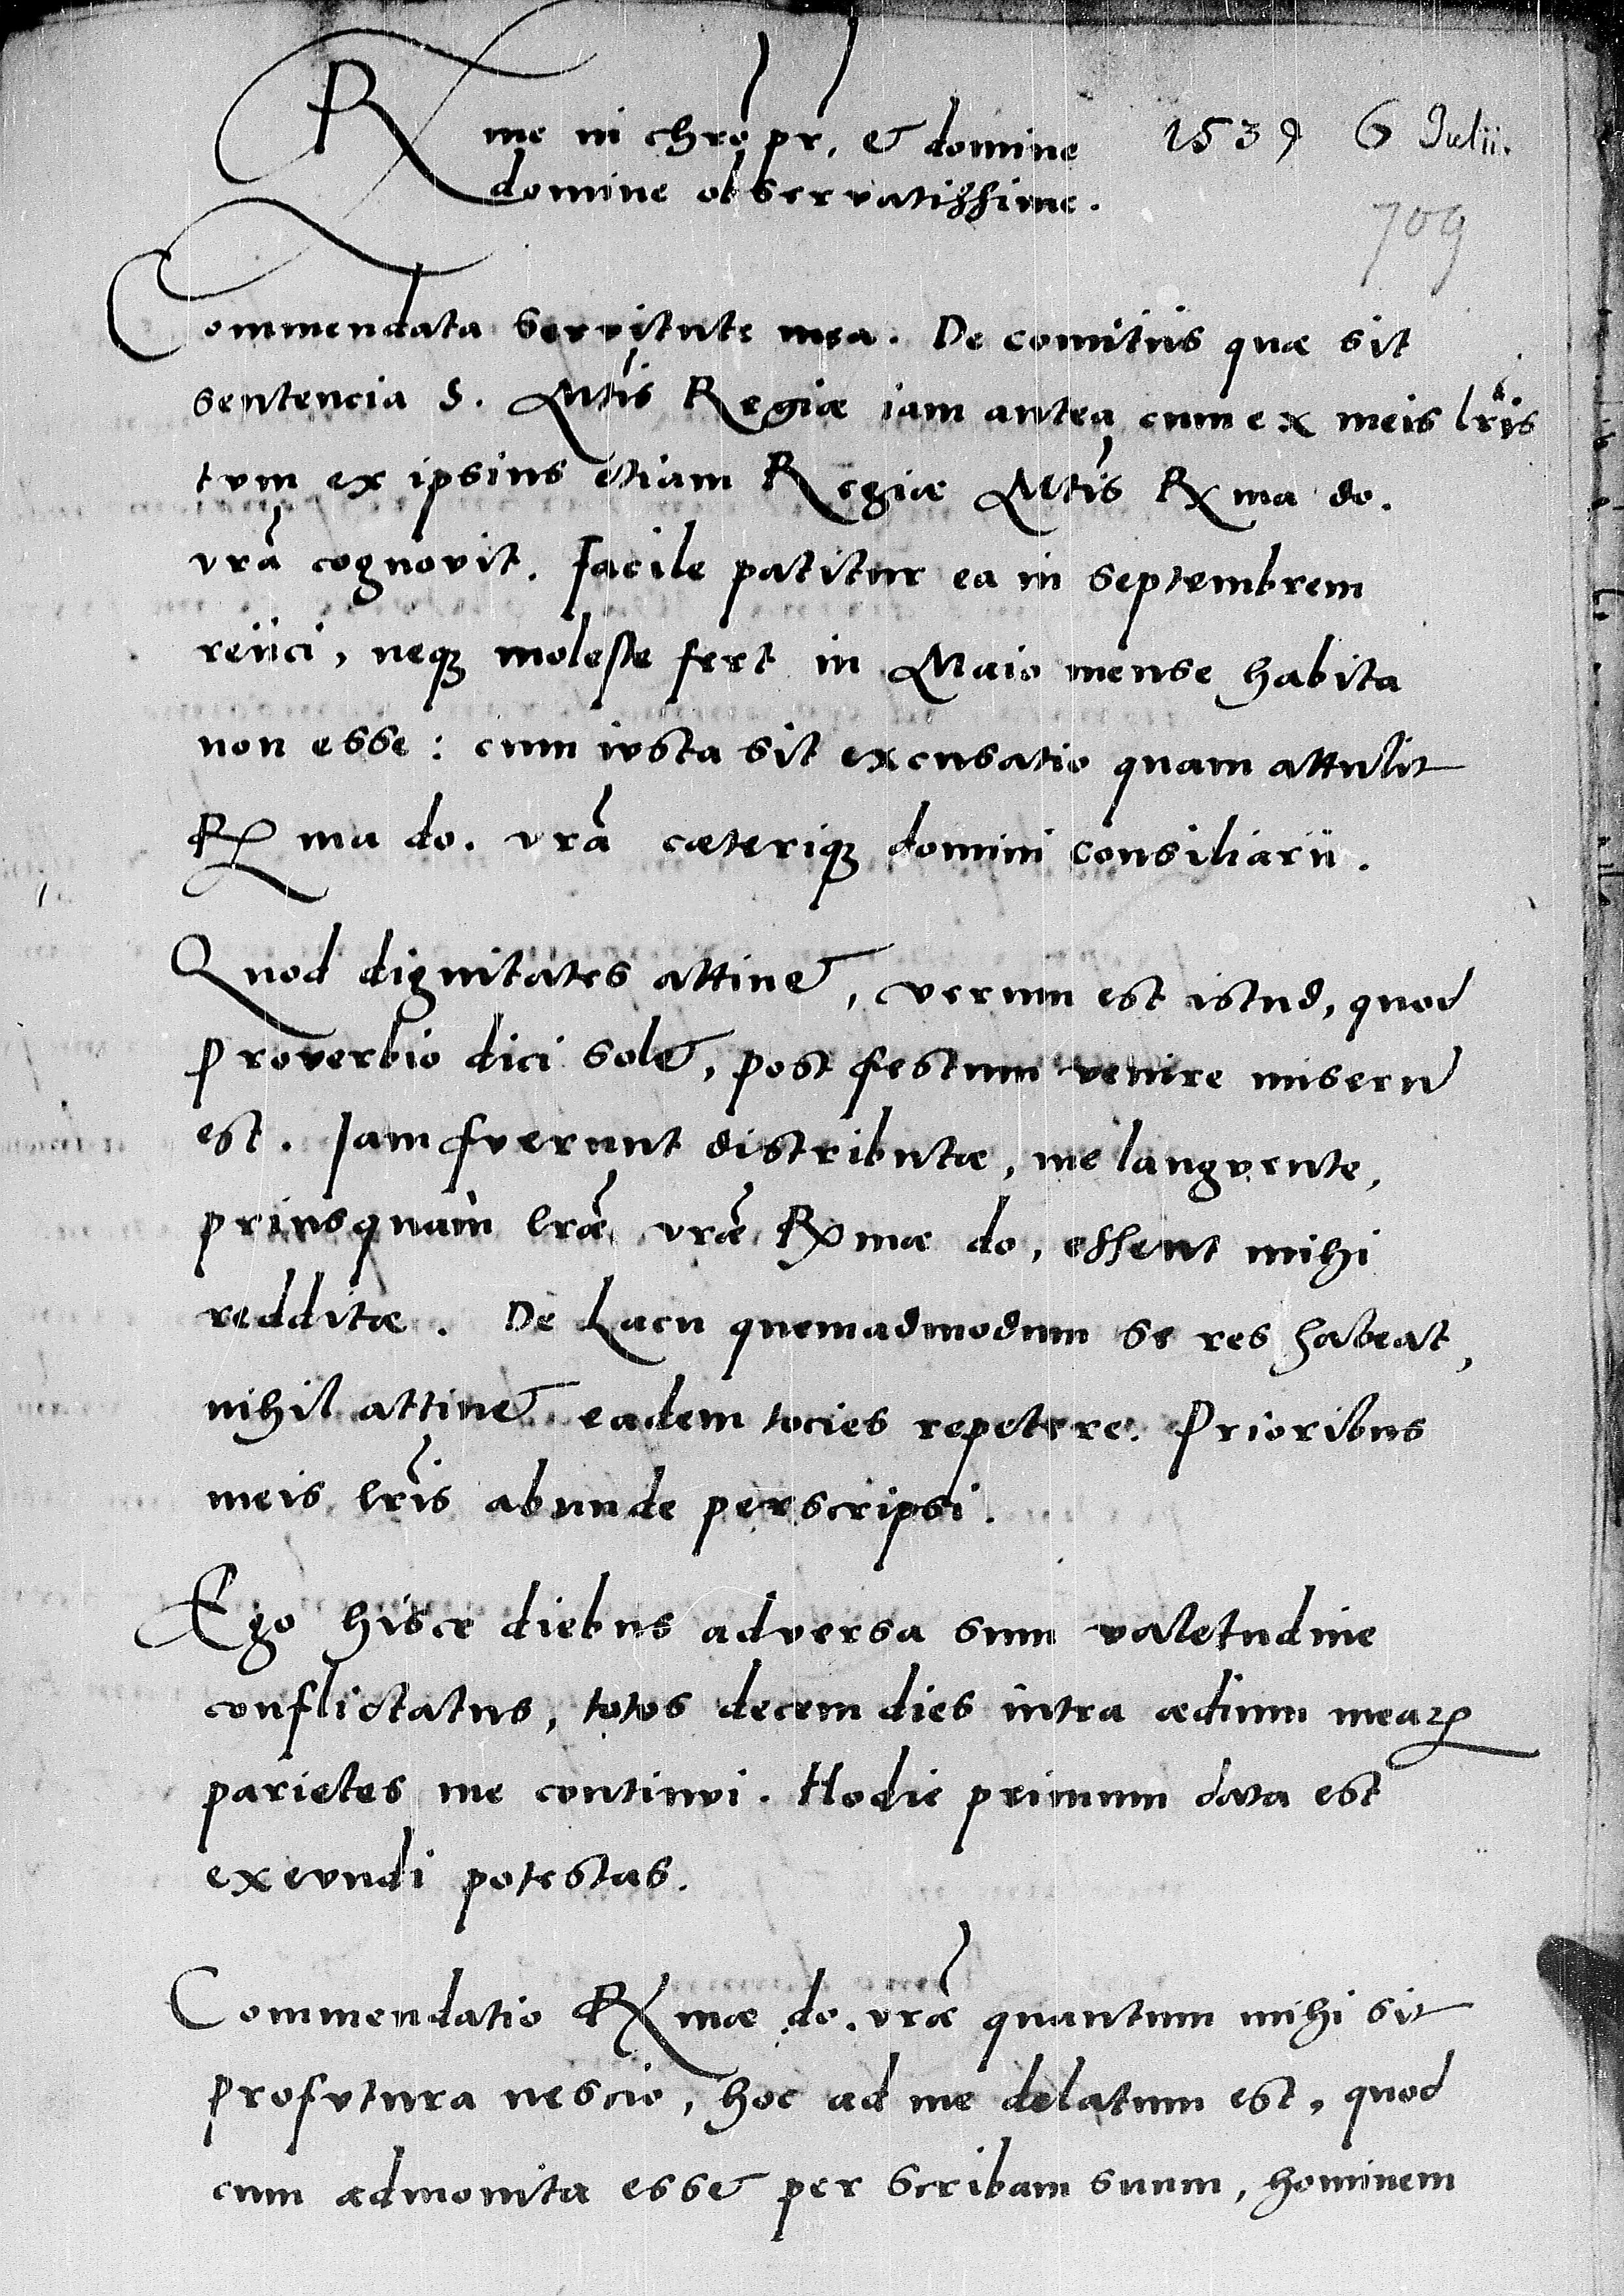 Rme in chro pr. & domine 1539 6 Julii.
domine observatissime.
709
Commendata servitute mea. De comitiis quæ sit
sentencia S. Mtis Regiæ iam antea cum ex meis lris
tum ex ipsius etiam Regiæ Mtis Rma do.
vra cognovit. Facile patitur ea in septembrem
reiici, neqꝫ moleste fert in Maio mense habita
non esse: cum iusta sit excusatio quam attulit
Rma do. vra cæteriqꝫ domini consiliarii.
Quod dignitates attinet, verum est istud, quod
proverbio dici solet, post festum venire miserū
est. Iam fuerunt distributæ, me languente,
priusquam lræ vræ Rmæ do. essent mihi
redditæ. De Lacu quemadmodum se res habeat,
nihil attinet eadem tocies repetere. Prioribus
meis lris abunde perscripsi.
Ego hisce diebus adversa sum valetudine
conflictatus, totos decem dies intra ædium meaꝝ
parietes me continui. Hodie primum data est
exeundi potestas.
Commendatio Rmæ do. vræ quantum mihi sit
profutura nescio, hoc ad me delatum est, quod
cum admonita esset per scribam suum, hominem